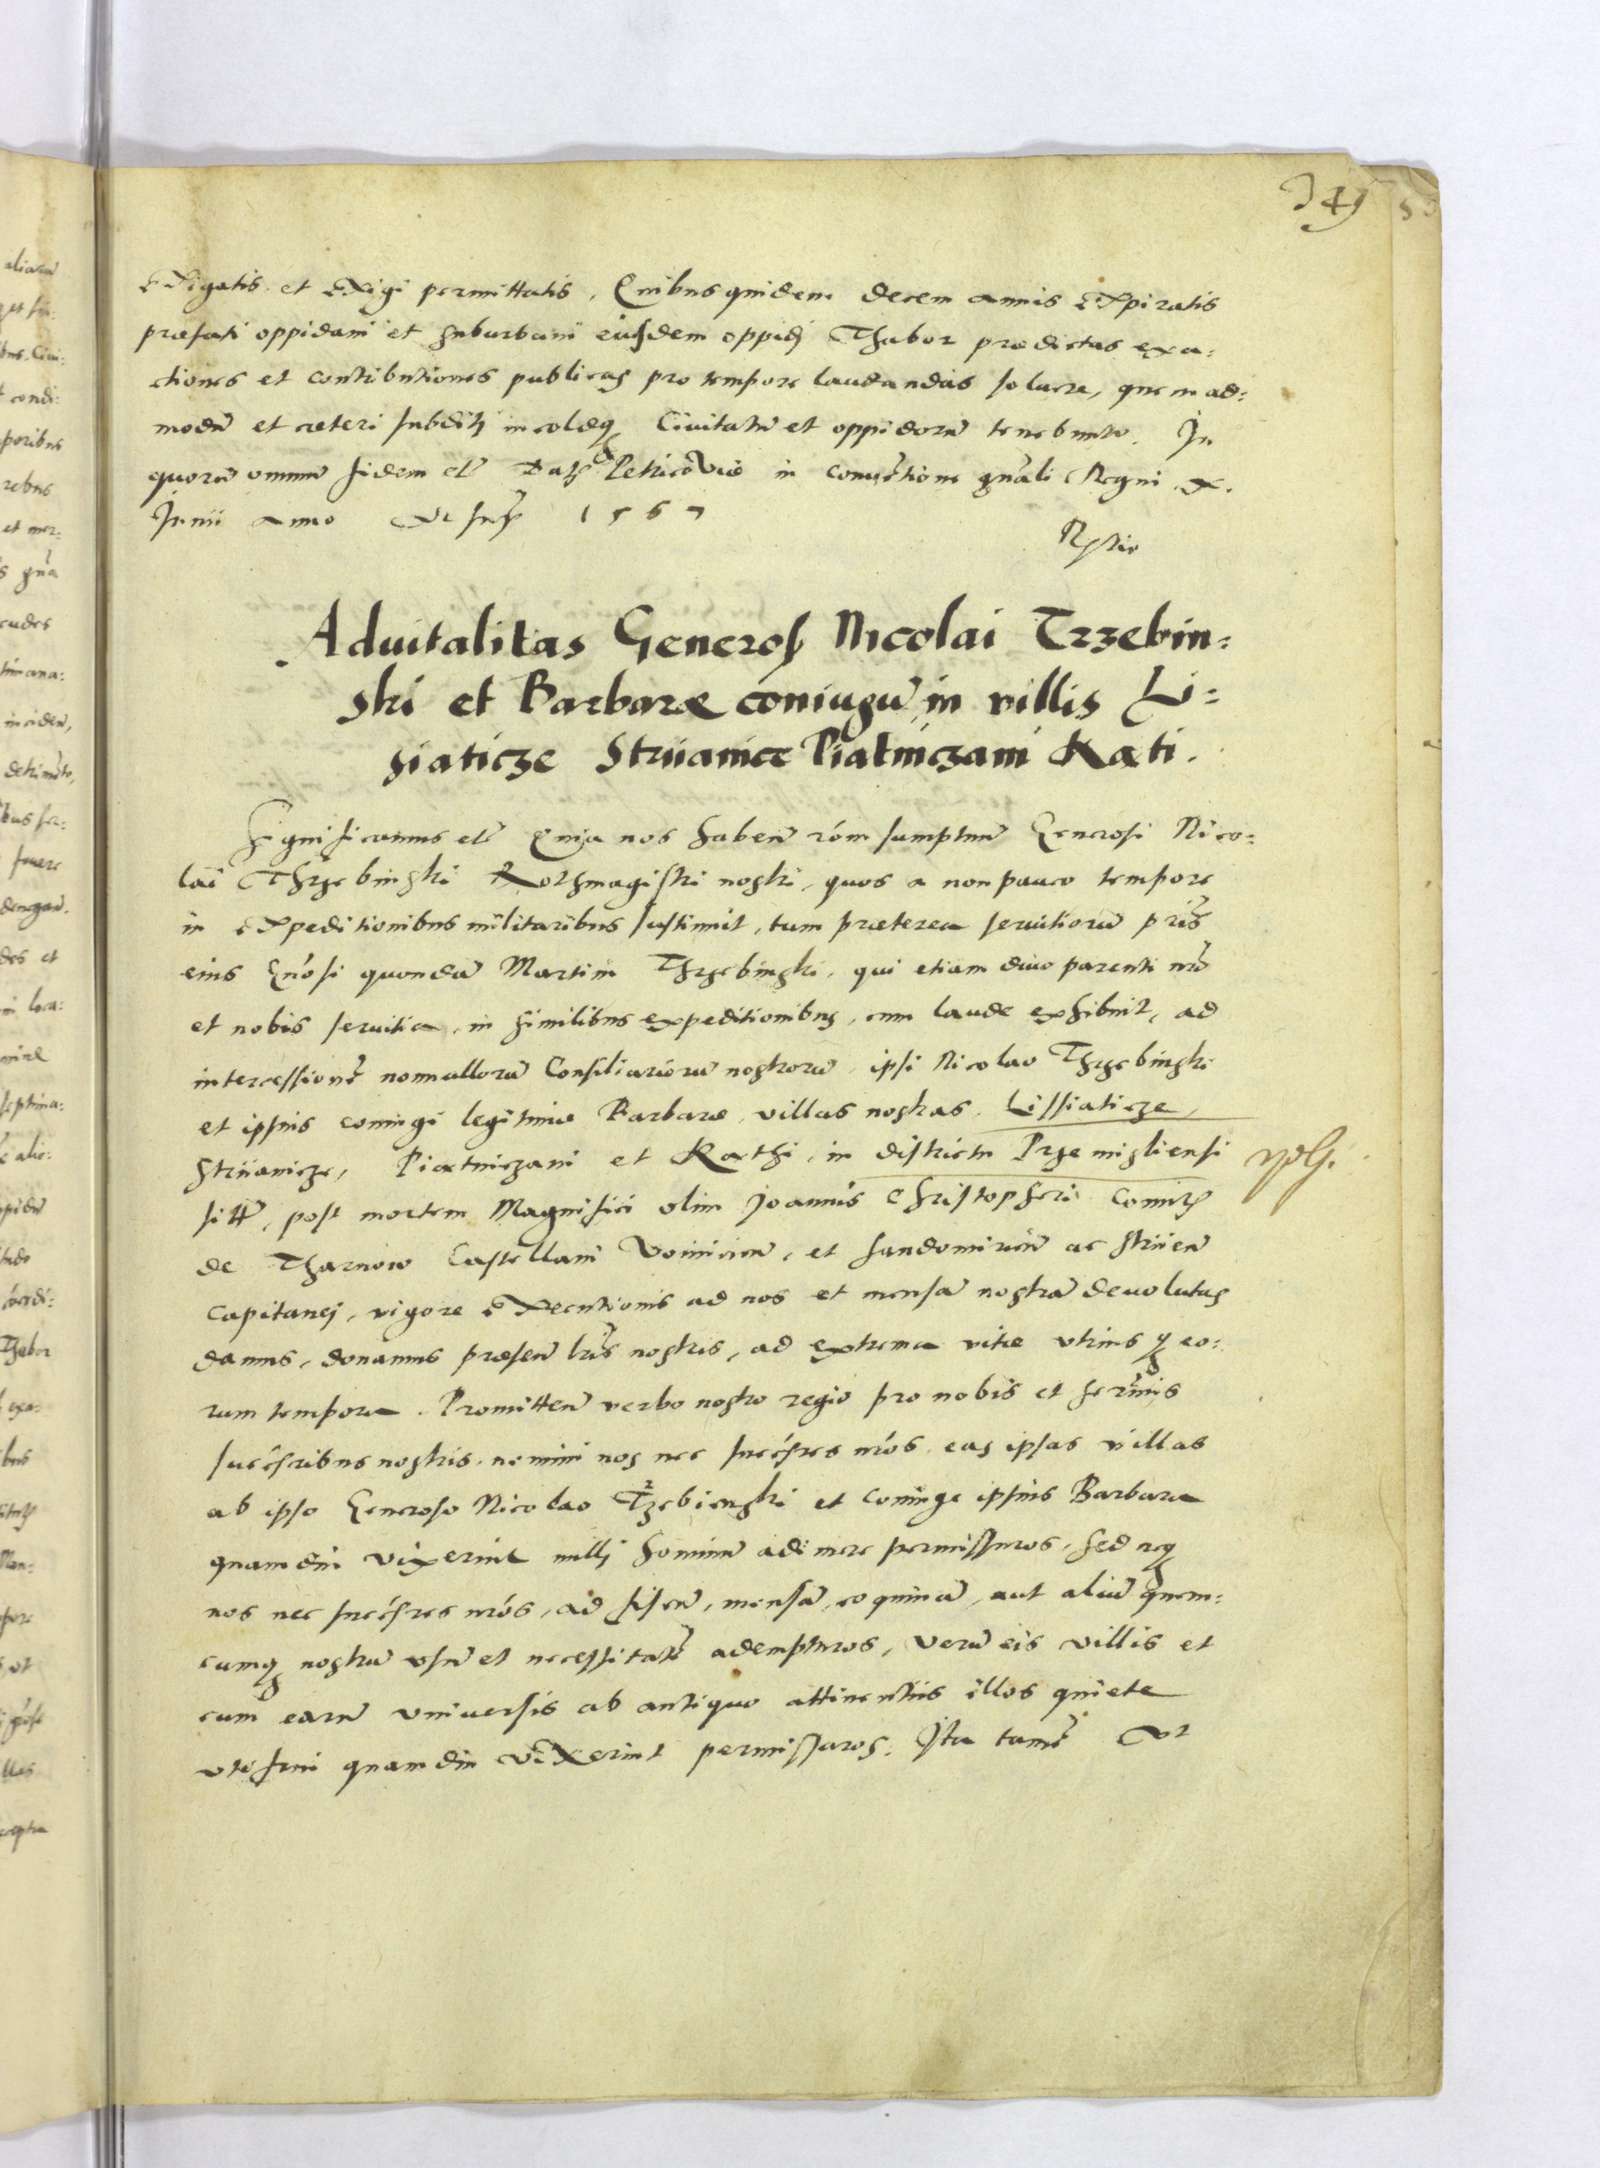 349
exigatis et exigi permittatis, Quibus quidem decem annis expiratis
præfati oppidani et suburbani eiusdem oppidj Thabor prædictas exa:
ctiones et contributiones publicas pro tempore laudandas soluere, quemad:
modũ et cæteri subditj incolæqȝ Ciuitatũ et oppidorũ tenebuntur. In
quorũ omniũ fidem etc̃ Datȝ Petricouiæ in conuẽtione gñali Regni X.
Junii anno 1567
Aduitalitas Generosȝ Nicolai Trzebin:
ski et Barbaræ coniugũ in villis Li:
siaticze Striianice Piatniczani Kati.
Significamus etc̃ Quia nos haben̄ rõm sumptuum Generosi Nico:
lai Thrzebinski Rothmagistri nostri, quos a non pauco tempore
in expeditionibus militaribus sustinuit, tum præterea seruitiorũ pr̃is
eius Gñosi quondã Martini Thrzebinski, qui etiam diuo parenti nr̃o
et nobis seruitia, in similibus expeditionibus, cum laude exhibuit, ad
intercessionẽ nonnullorũ Consiliariorũ nostrorũ, ipsi Nicolao Thrzebinski
et ipsius coniugi legitimæ Barbaræ, villas nostras, Lissiaticze,
Striianicze, Piatniczani et Kathi, in districtu Przemisliensi
sitas, post mortem Magnifici olim Joannis Christopheri Comitȝ
de Tharnow Castellani Voiniciem̃, et Sandomirieñ ac Striieñ
Capitanej, vigore executionis ad nos et mensã nostrã deuolutas
damus, donamus præsen̄ lr̃is nostris, ad extrema vitæ vtriusqȝ eo:
rum tempora. Promitteñ verbo nostro regio pro nobis et ser̃mis
succẽsribus nostris, nemini nos nec succẽsres nr̃os, eas ipsas villas
ab ipso Generoso Nicolao Trzebienski et coniuge ipsius Barbara
quamdiu vixerint nullj hominũ adimere permissuros, sed neqȝ
nos nec succẽsres nr̃os, ad fiscũ, mensã, coquinã, aut aliũ quem:
cumqȝ nostrũ vsũ et necessitatẽ adempturos, verũ eis villis et
cum earũ vniuersis ab antiquo attinentiis illos quiete
vti frui quamdiu vixerint permissuros. Ita tamẽ vt